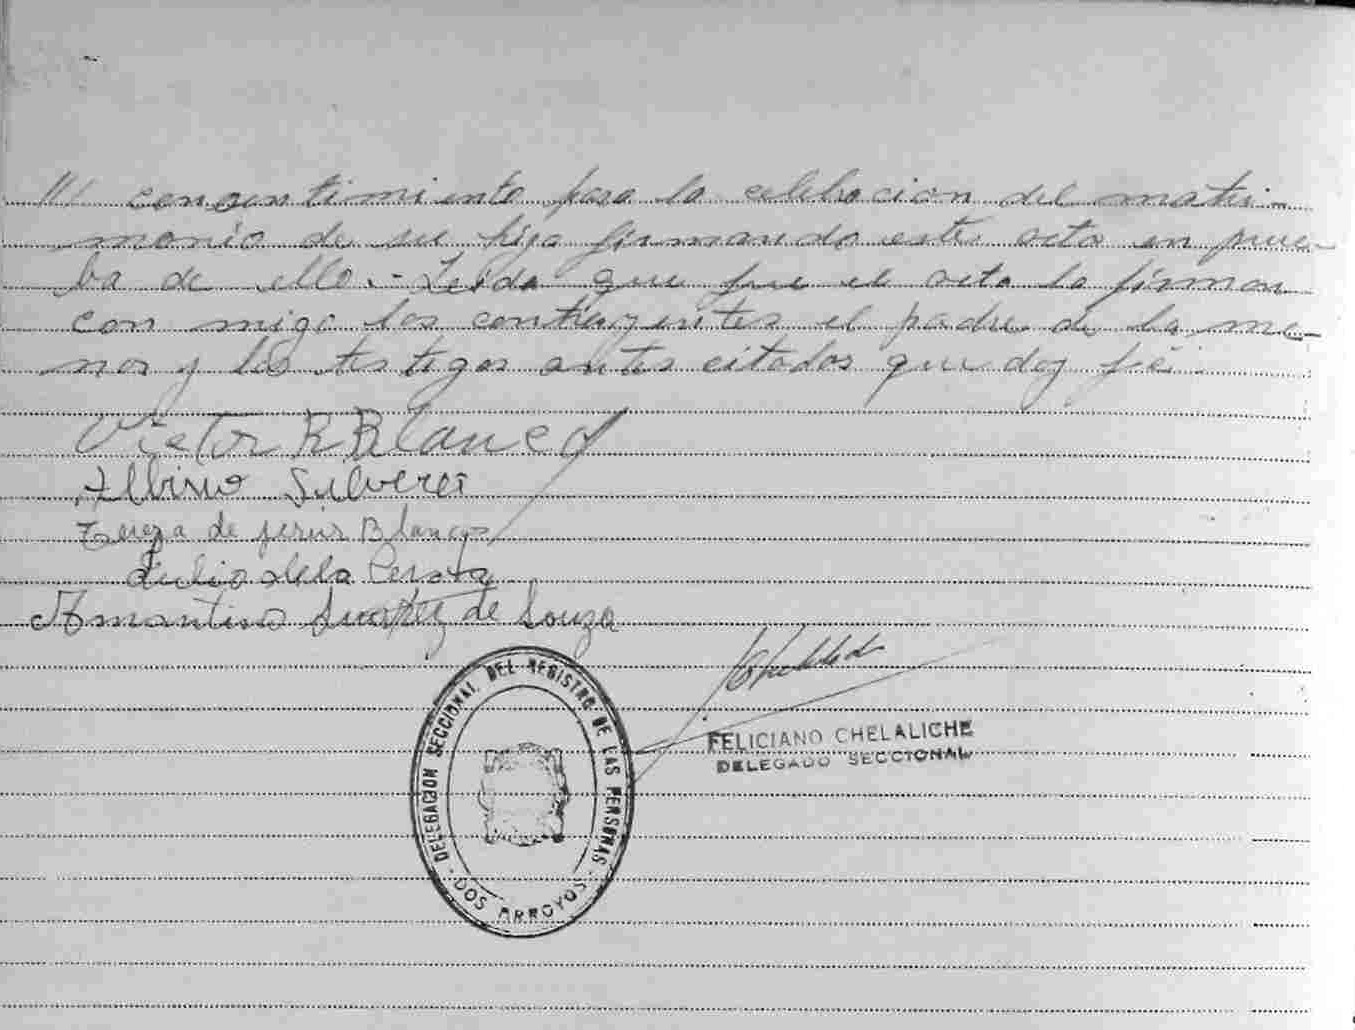 /// consentimiento para la celebracion del matri-
monio de su hija firmando este acta en prue-
ba de ello.- Leida que fue el acta la firman
con migo los contrayentes el padre de la me-
nor y los testigos antes citados que doy fé.
Victor R Blanco
Albino Silveri
Tereza de jesus Blanco
Julio de la
Amantino Suarez de Souza
DELEGACION SECCIONAL DEL REGISTRO DE LAS PERSONAS
- DOS ARROYOS -
FELICIANO CHELALICHE
DELEGADO SECCIONAL